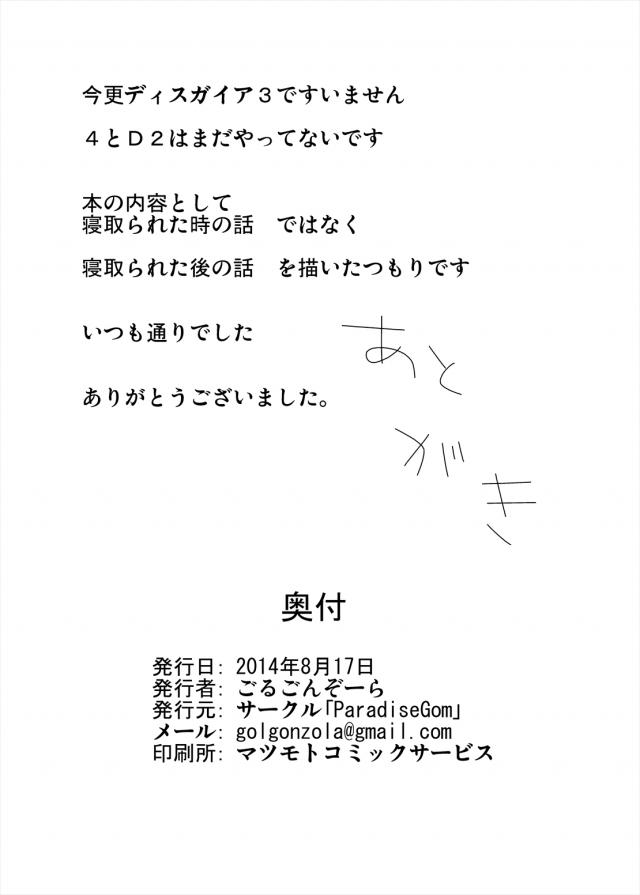 今更ディスガイア３ですいません
４とＤ２はまだやってないです
本の内容として
寝取られた時の話　ではなく
寝取られた後の話　を描いたつもりです
いつも通りでした
ありがとうございました。
あとがき
奥付
発行日: 2014年8月17日
発行者: ごるごんぞーら
発行元: サークル「ParadiseGom」
メール: golgonzola@gmail.com
印刷所: マツモトコミックサービス